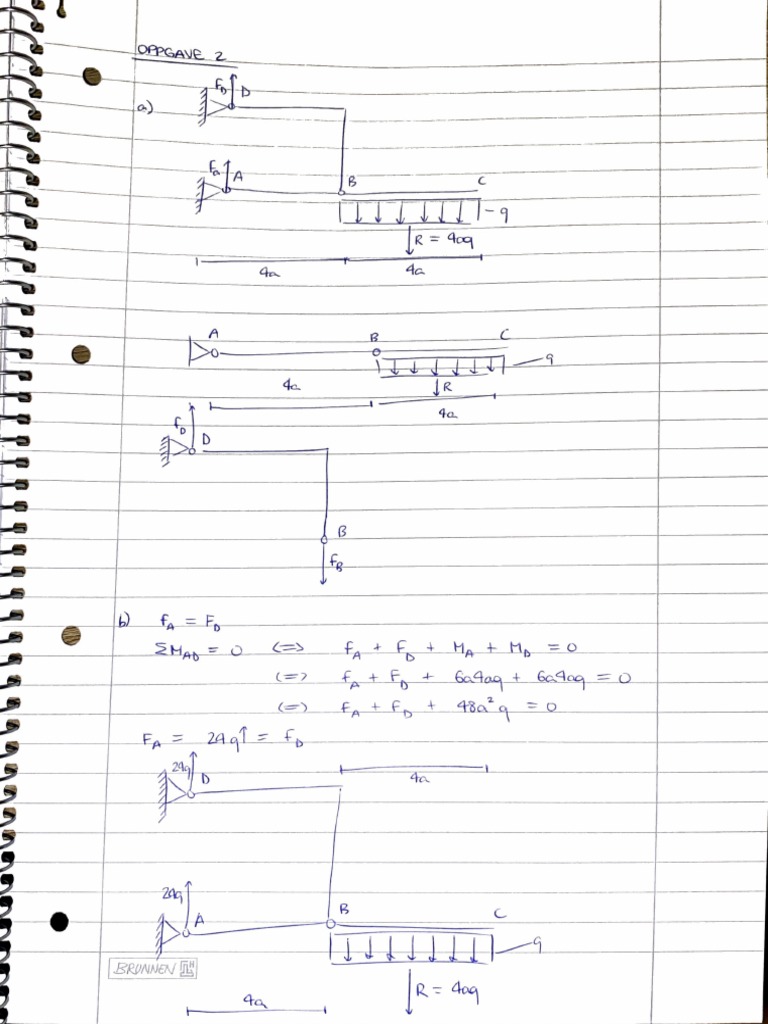 OPPGAVE 2
a)
F_D D
F_a A
B C
q
R = 4aq
4a 4a
A B C
q
R
4a
4a
f_D D
B
f_B
b) f_A = F_D
ΣM_AD = 0 <=> f_A + F_D + M_A + M_D = 0
(=) f_A + F_D + 6a4aq + 6a4aq = 0
(=) f_A + F_D + 48a²q = 0
F_A = 24q↑ = f_D
24q D
4a
24q
A B C
q
BRUNNEN
R = 4aq
4a